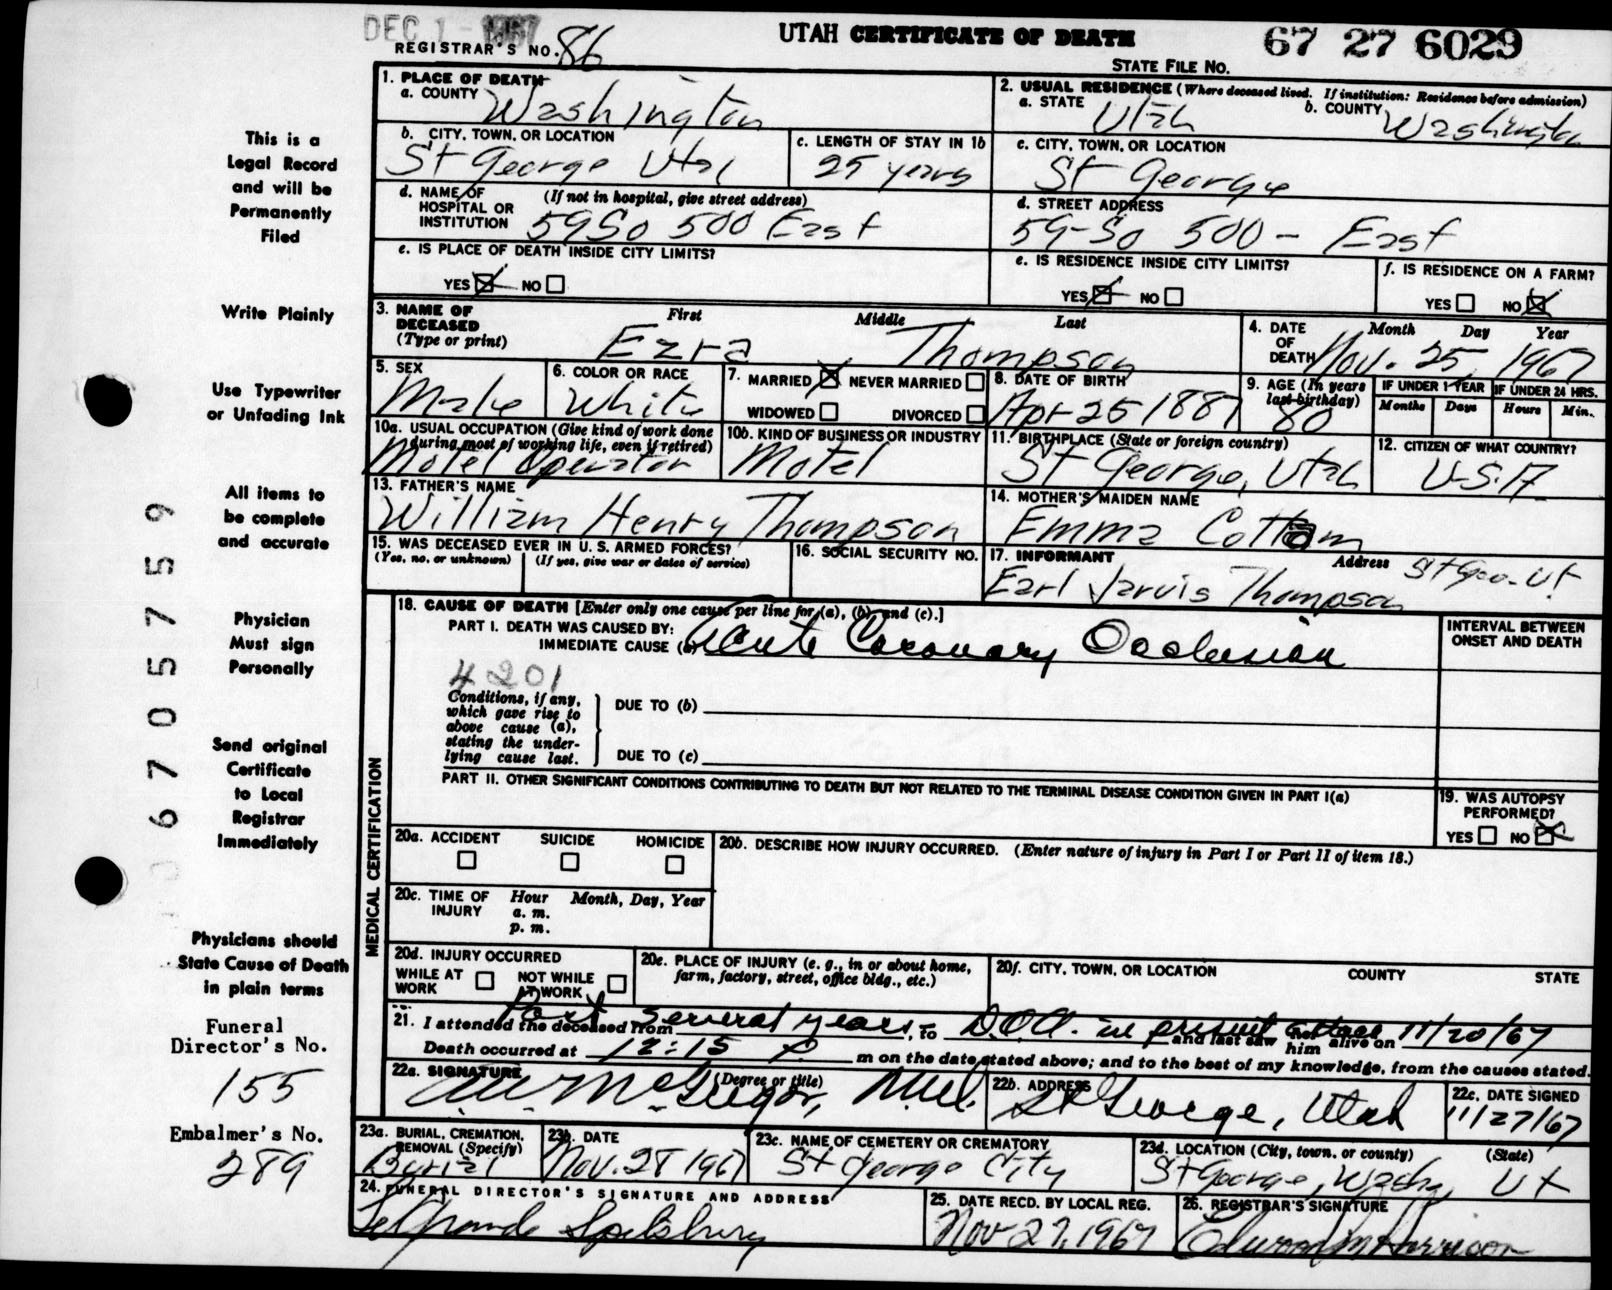 DEC 1 - 1967
UTAH CERTIFICATE OF DEATH
67 27 6029
REGISTRAR'S NO. 86
STATE FILE NO.
This is a
Legal Record
and will be
Permanently
Filed
Write Plainly
Use Typewriter
or Unfading Ink
All items to
be complete
and accurate
Physician
Must sign
Personally
Send original
Certificate
to Local
Registrar
Immediately
Physicians should
State Cause of Death
in plain terms
Funeral
Director's No.
155
Embalmer's No.
289
6705759
1. PLACE OF DEATH
a. COUNTY Washington
2. USUAL RESIDENCE (Where deceased lived. If institution: Residence before admission)
a. STATE Utah b. COUNTY Washington
b. CITY, TOWN, OR LOCATION
St George Utah
c. LENGTH OF STAY IN 1b
25 years
c. CITY, TOWN, OR LOCATION
St George
d. NAME OF HOSPITAL OR INSTITUTION (If not in hospital, give street address)
59 So 500 East
d. STREET ADDRESS
59-So 500 - East
e. IS PLACE OF DEATH INSIDE CITY LIMITS?
YES ☒ NO ☐
e. IS RESIDENCE INSIDE CITY LIMITS?
YES ☒ NO ☐
f. IS RESIDENCE ON A FARM?
YES ☐ NO ☒
3. NAME OF DECEASED (Type or print)
First Middle Last
Ezra Thompson
4. DATE OF DEATH Month Day Year
Nov. 25, 1967
5. SEX
Male
6. COLOR OR RACE
White
7. MARRIED ☒ NEVER MARRIED ☐
WIDOWED ☐ DIVORCED ☐
8. DATE OF BIRTH
Apr 25 1887
9. AGE (In years last birthday)
80
IF UNDER 1 YEAR
Months Days
IF UNDER 24 HRS.
Hours Min.
10a. USUAL OCCUPATION (Give kind of work done during most of working life, even if retired)
Motel Operator
10b. KIND OF BUSINESS OR INDUSTRY
Motel
11. BIRTHPLACE (State or foreign country)
St George, Utah
12. CITIZEN OF WHAT COUNTRY?
U.S.A
13. FATHER'S NAME
William Henry Thompson
14. MOTHER'S MAIDEN NAME
Emma Cottam
15. WAS DECEASED EVER IN U. S. ARMED FORCES?
(Yes, no, or unknown) (If yes, give war or dates of service)
16. SOCIAL SECURITY NO.
17. INFORMANT Address
Earl Jarvis Thompson St Geo. Ut
MEDICAL CERTIFICATION
18. CAUSE OF DEATH [Enter only one cause per line for (a), (b), and (c).]
PART I. DEATH WAS CAUSED BY:
IMMEDIATE CAUSE (a) Acute Coronary Occlusion
INTERVAL BETWEEN ONSET AND DEATH
4201
Conditions, if any, which gave rise to above cause (a), stating the underlying cause last.
DUE TO (b)
DUE TO (c)
PART II. OTHER SIGNIFICANT CONDITIONS CONTRIBUTING TO DEATH BUT NOT RELATED TO THE TERMINAL DISEASE CONDITION GIVEN IN PART I(a)
19. WAS AUTOPSY PERFORMED?
YES ☐ NO ☒
20a. ACCIDENT SUICIDE HOMICIDE
☐ ☐ ☐
20b. DESCRIBE HOW INJURY OCCURRED. (Enter nature of injury in Part I or Part II of item 18.)
20c. TIME OF INJURY Hour Month, Day, Year
a. m.
p. m.
20d. INJURY OCCURRED
WHILE AT WORK ☐ NOT WHILE AT WORK ☐
20e. PLACE OF INJURY (e. g., in or about home, farm, factory, street, office bldg., etc.)
20f. CITY, TOWN, OR LOCATION COUNTY STATE
21. I attended the deceased from Past several years, to D.O.A. and last saw him alive on 11/20/67
Death occurred at 12:15 P m on the date stated above; and to the best of my knowledge, from the causes stated.
22a. SIGNATURE (Degree or title)
McGregor, M.D.
22b. ADDRESS
St George, Utah
22c. DATE SIGNED
11/27/67
23a. BURIAL, CREMATION, REMOVAL (Specify)
Burial
23b. DATE
Nov. 28 1967
23c. NAME OF CEMETERY OR CREMATORY
St George City
23d. LOCATION (City, town, or county) (State)
St George, Wash, Ut
24. FUNERAL DIRECTOR'S SIGNATURE AND ADDRESS
Spilsbury
25. DATE RECD. BY LOCAL REG.
Nov 27, 1967
26. REGISTRAR'S SIGNATURE
Harrison